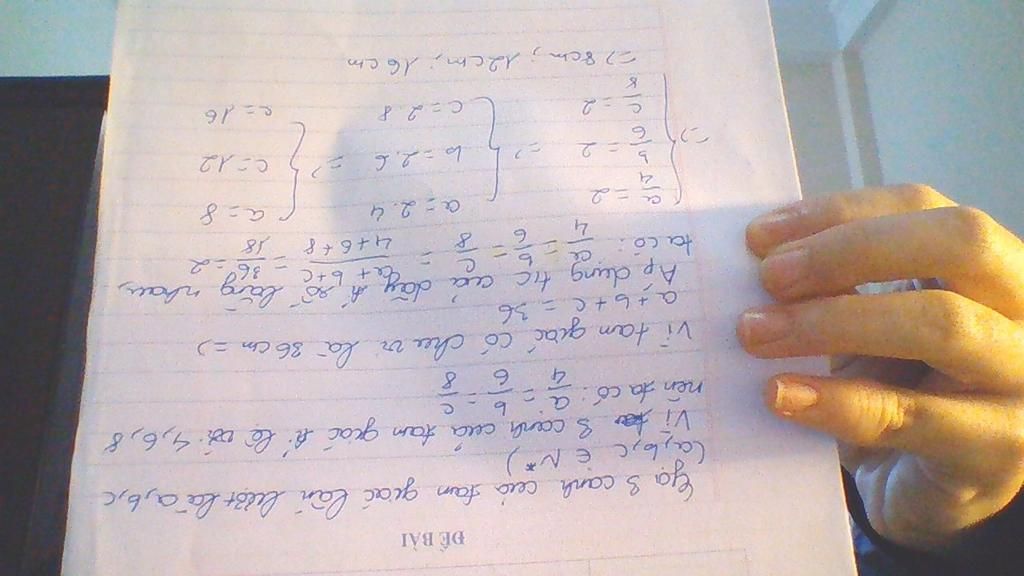 ĐỀ BÀI
Gọi 3 cạnh của tam giác lần lượt là a, b, c
(a, b, c ∈ N*)
Vì 3 cạnh của tam giác tỉ lệ với 4, 6, 8
nên ta có: a/4 = b/6 = c/8
Vì tam giác có chu vi là 36 cm =>
a + b + c = 36
Áp dụng t/c của dãy tỉ số bằng nhau,
ta có: a/4 = b/6 = c/8 = (a + b + c)/(4 + 6 + 8) = 36/18 = 2
=> { a/4 = 2 => { a = 2.4 => { a = 8
b/6 = 2 b = 2.6 c = 12
c/8 = 2 c = 2.8 c = 16
=> 8cm; 12cm; 16cm